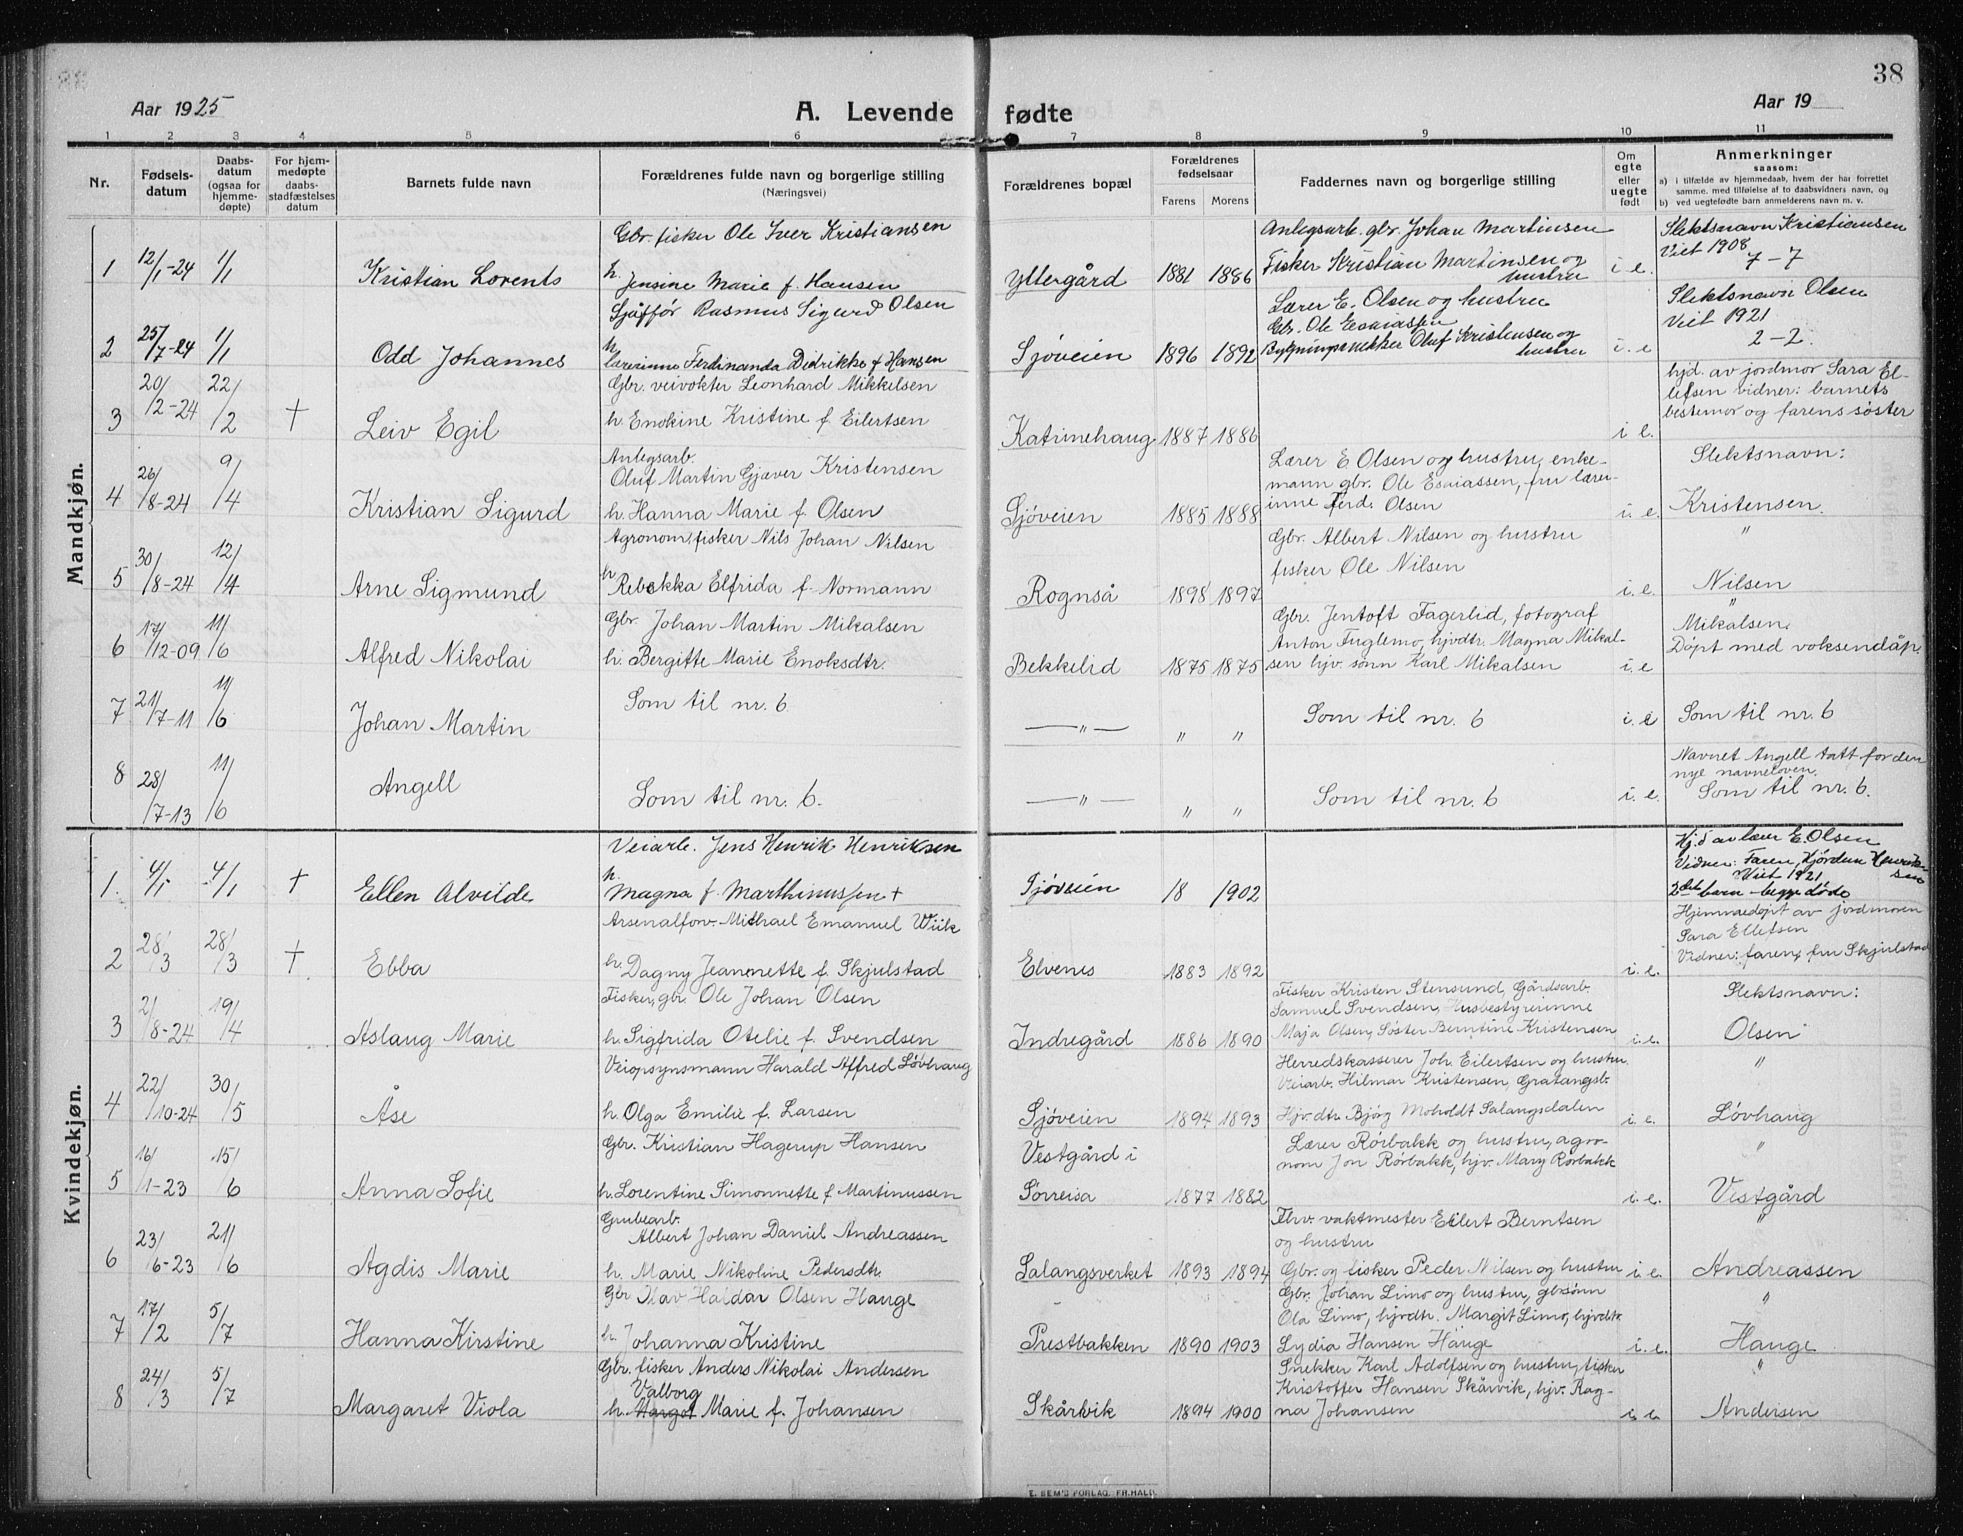 38
Aar 1925
A. Levende fødte
Aar 19
1 2 3 4 5 6 7 8 9 10 11
Nr.
Fødsels-
datum
Daabs-
datum
(ogsaa for
hjemme-
døpte)
For hjem-
medøpte
daabs-
stadfæstelses
datum
Barnets fulde navn
Forældrenes fulde navn og borgerlige stilling
(Næringsvei)
Forældrenes bopæl
Forældrenes
fødselsaar
Farens Morens
Faddernes navn og borgerlige stilling
Om
egte
eller
uegte
født
Anmerkninger
saasom:
a) i tilfælde av hjemmedaab, hvem der har forrettet
samme, med tilføielse af to daabsvidners navn, og
b) ved uegtefødte barn anmelderens navn m. v.
Mandkjøn.
Gbr. fisker Ole Iver Kristiansen
Anlegsarb. gbr. Johan Martinsen
Slektsnavn Kristiansen
Viet 1908
1 12/1-24 1/1 Kristian Lorents h. Jensine Marie f. Hansen Yttergård 1881 1886 Fisker Kristian Martinsen og hustru i e. 7-7
Sjåffør Rasmus Sigurd Olsen
Lærer E. Olsen og hustru
Gbr. Ole Esaiassen
Slektsnavn Olsen
Viet 1921
2 25/7-24 1/1 Odd Johannes h. Lærerinne Ferdinanda Didrikke f Hansen Sjøveien 1896 1892 Bygningssnekker Oluf Kristensen og hustru i. e 2-2.
Gbr. veivokter Leonhard Mikkelsen
hjd. av jordmor Sara El-
lefsen vidner: barnets
bestemor og farens søster
3 20/2-24 22/2 † Leiv Egil h. Enokine Kristine f. Eilertsen Katrinehaug 1887 1886 i e.
Anlegsarb.
Oluf Martin Gjæver Kristensen
Lærer E Olsen og hustru, enke-
mann gbr. Ole Esaiassen, fru lærer-
inne Ferd. Olsen
Slektsnavn:
4 26/8-24 9/4 Kristian Sigurd h. Hanna Marie f. Olsen Sjøveien 1885 1888 i. e. Kristensen.
Agronom, fisker Nils Johan Nilsen
Gbr. Albert Nilsen og hustru
fisker Ole Nilsen
"
5 30/8-24 12/4 Arne Sigmund h Rebekka Elfrida f. Normann Rognså 1898 1897 i.e. Nilsen
Gbr. Johan Martin Mikalsen
Gbr. Jentoft Fagerlid, fotograf
Anton Fuglemo, hjvdtr. Magna Mikal-
sen hjv. sønn Karl Mikalsen
"
Mikalsen.
Døpt med voksendåp
6 17/12-09 11/6 Alfred Nikolai h. Bergitte Marie Enoksdtr. Bekkelid 1875 1875 i. e
7 21/7-11 11/6 Johan Martin Som til nr. 6 —"— " " Som til nr. 6 i. e Som til nr. 6
Navnet Angell tatt før den
nye navneloven.
8 28/7-13 11/6 Angell Som til nr. 6. —"— " " Som til nr. 6 i. e. Som til nr. 6.
Kvindekjøn.
Veiarb. Jens Henrik Henriksen
Hjd av lærer E. Olsen
Vidner: Faren, Hjørdun Henrik-
sen
Viet 1921
2det barn - begge døde
1. 4/1 4/1 † Ellen Alvilde h. Magna f. Marthinussen † Sjøveien 18 1902
Arsenalforv. Michael Emanuel Wiik
Hjemmedøpt av jordmoren
Sara Ellefsen
Vidner: faren, fru Skjulstad
2 28/3 28/3 † Ebba h. Dagny Jeannette f. Skjulstad Elvenes 1883 1892 i. e.
Fisker, gbr. Ole Johan Olsen
Fisker Kristen Stensund, Gårdsarb.
Samuel Svendsen, Husbestyrerinne
Maja Olsen, Søster Berntine Kristensen
Slektsnavn:
3 2/8-24 19/4 Aslaug Marie h. Sigfrida Otelie f. Svendsen Indregård 1886 1890 i.e. Olsen
Veiopsynsmann Harald Alfred Løvhaug
Herredskasserer Joh. Eilertsen og hustru
Veiarb. Hilmar Kristensen, Gratangsb.
Hjvdtr Bjørg Moholdt Salangsdalen
"
4 22/10-24 30/5 Åse h. Olga Emilie f. Larsen Sjøveien 1894 1893 i. e. Løvhaug
Gbr. Kristian Hagerup Hansen
Vestgård i
Lærer Rørbakk og hustru, agro-
nom Jon Rørbakk, hjv. Mary Rørbakk
"
5 16/1-23 15/6 Anna Sofie h. Lorentine Simonnette f. Martinussen Sørreisa 1877 1882 i.e. Vestgård
Grubearb.
Albert Johan Daniel Andreassen
Fhv. vaktmester Eilert Berntsen
og hustru
"
6 23/6-23 21/6 Agdis Marie h. Marie Nikoline Pedersdtr. Salangsverket 1893 1894 Gbr. og fisker Peder Nilsen og hustru i. e. Andreassen
Gbr Olav Haldor Olsen Hauge
Gbr. Johan Limo og hustru, gbrsønn
Ola Limo, hjvdtr. Margit Limo, hjvdtr.
Lydia Hansen Hauge
"
7 17/2 5/7 Hanna Kirstine h. Johanna Kristine Prestbakken 1890 1903 i. e. Hauge
Gbr. fisker Anders Nikolai Andersen
Snekker Karl Adolfsen og hustru, fisker
Kristoffer Hansen Skårvik, hjv. Rag-
na Johansen
"
Valborg
8 24/3 5/7 Margaret Viola h. Margot Marie f. Johansen Skårvik 1894 1900 i. e. Andersen
E. SEM'S FORLAG, FR.HALD.